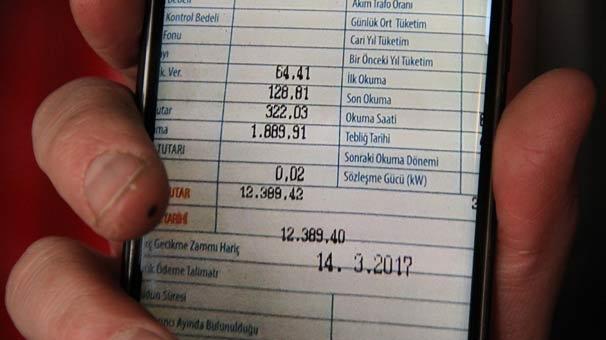 Akım Trafo Oranı
Kontrol Bedeli
Günlük Ort Tüketim
Fonu
Cari Yıl Tüketim
Bir Önceki Yıl Tüketim
Ver. 64,41 İlk Okuma
128,81 Son Okuma
322,03 Okuma Saati
1.889,91 Tebliğ Tarihi
TUTARI
Sonraki Okuma Dönemi
0,02 Sözleşme Gücü (kW)
12.389,42
12.389,40
Gecikme Zammı Hariç
14. 3.2017
Ödeme Talimatı
Süresi
Ayında Bulunulduğu